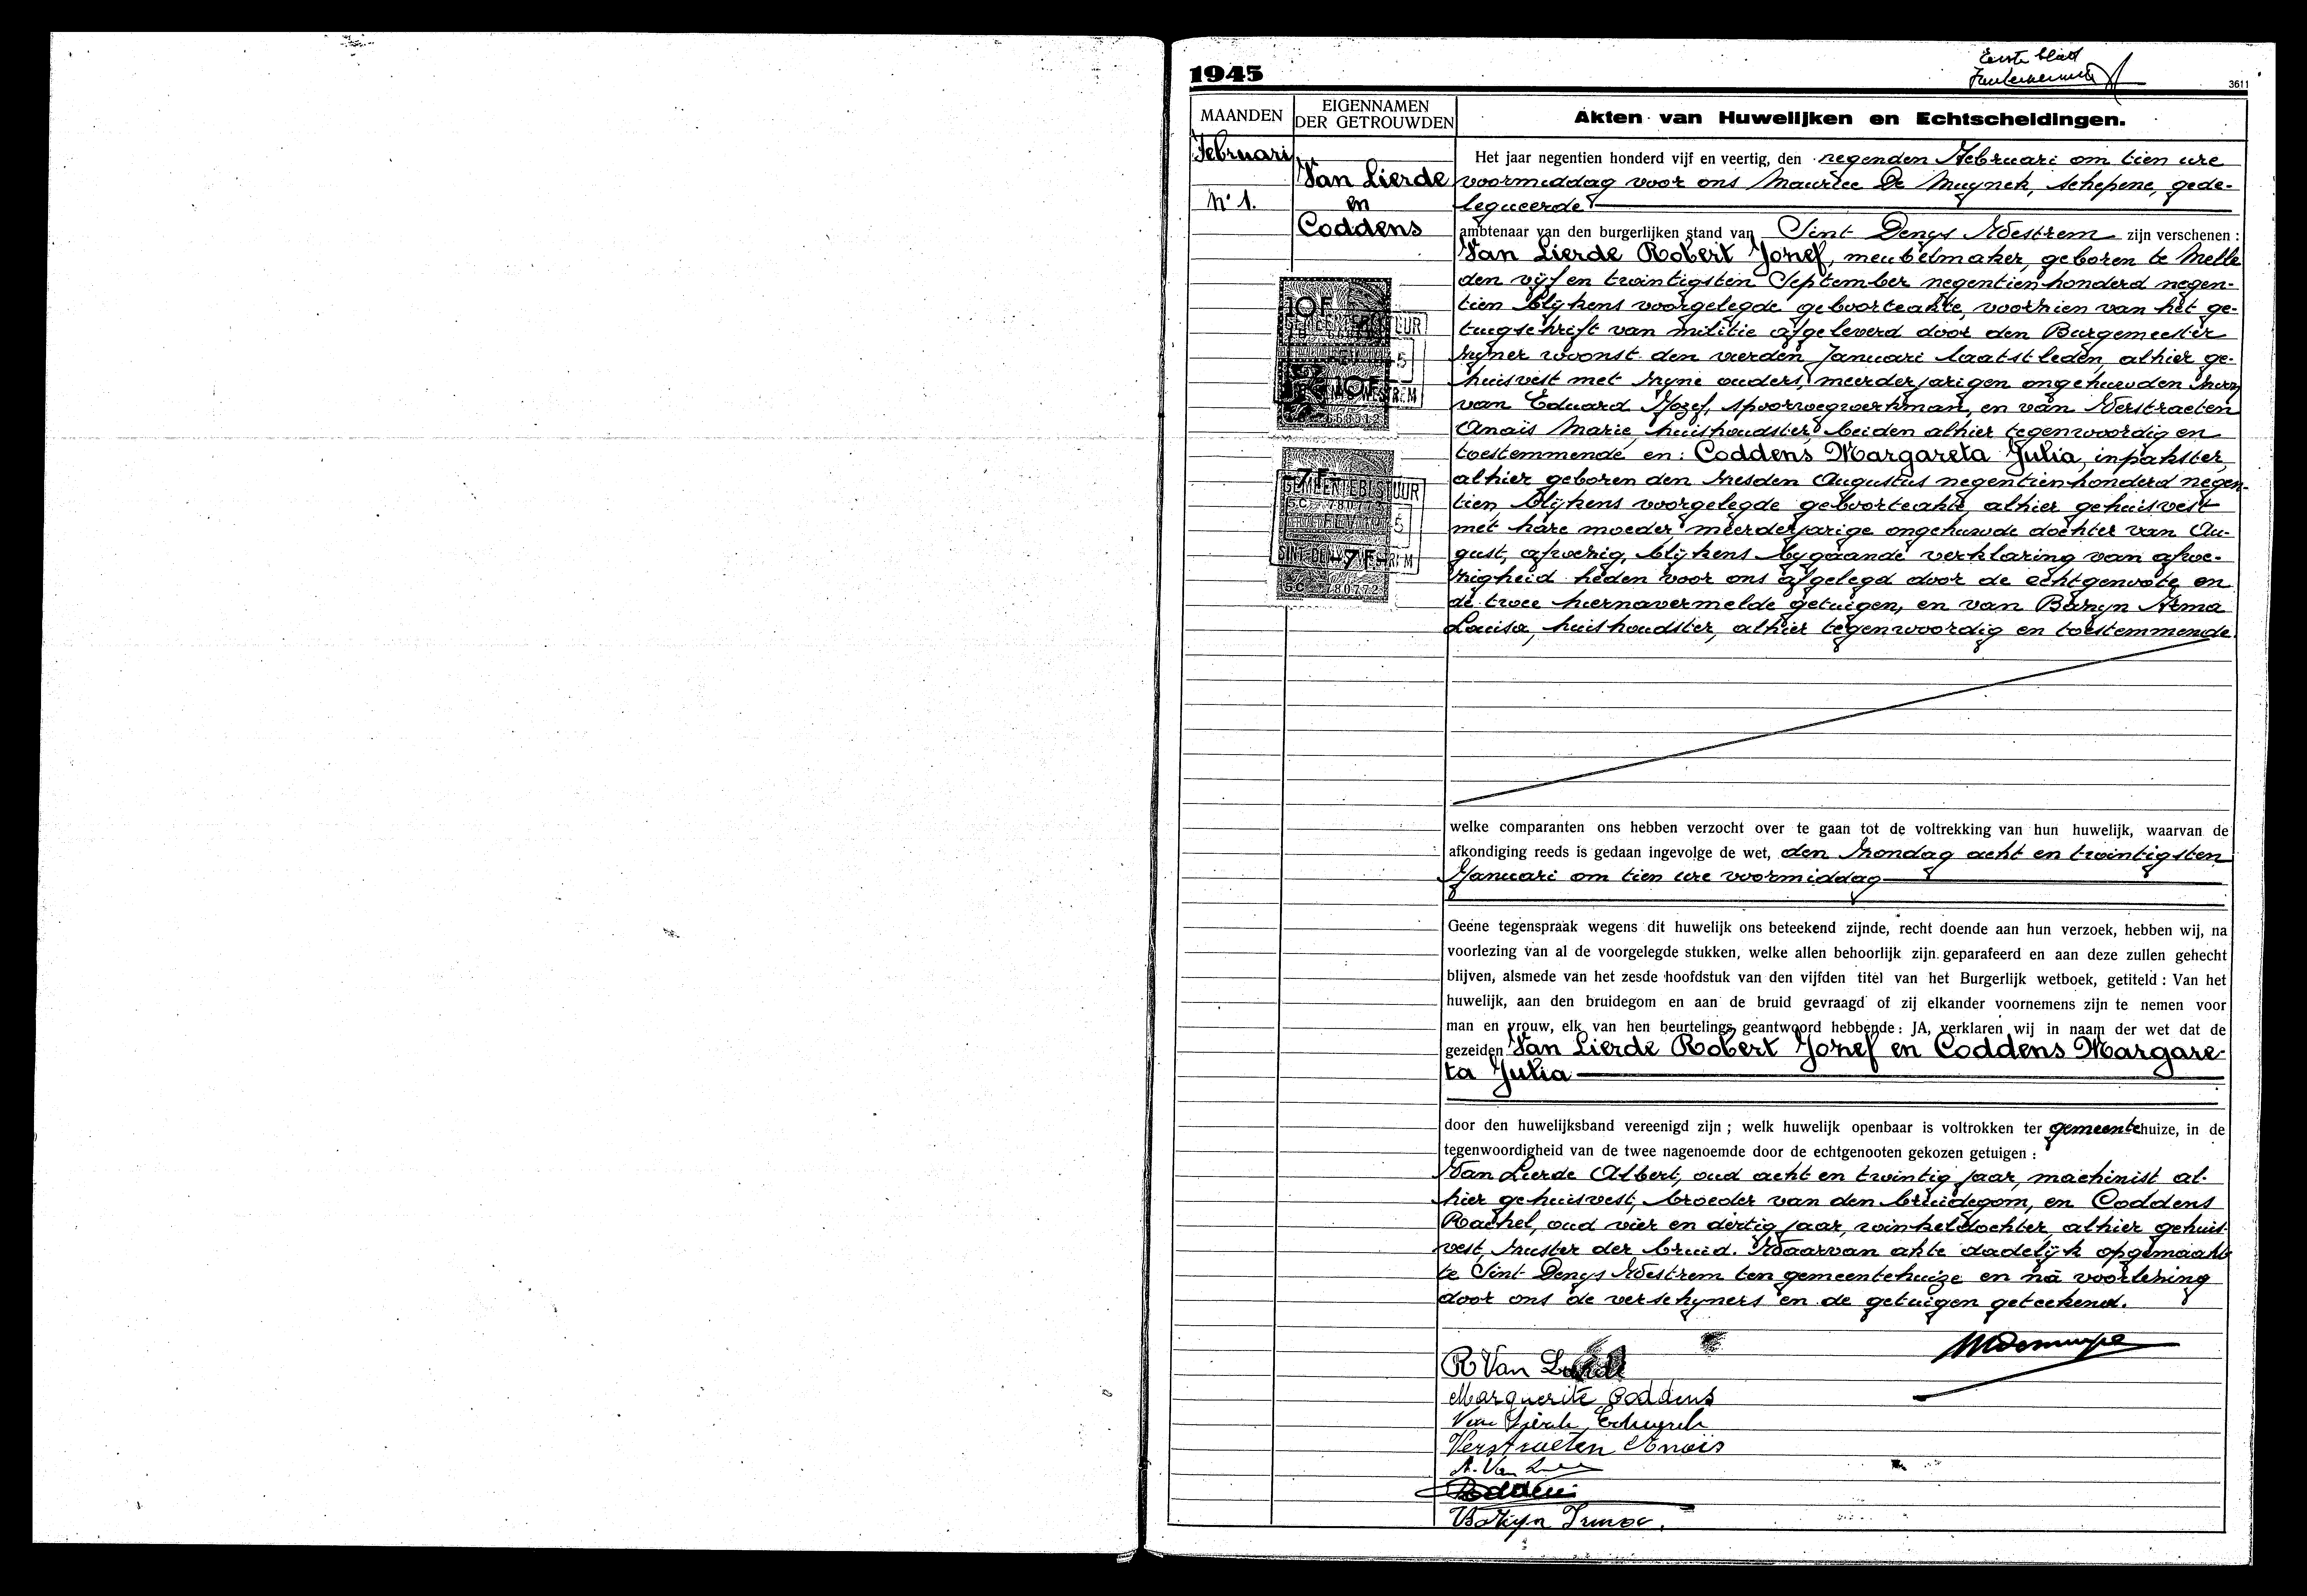 1945
Eerste blad
3611
MAANDEN
EIGENNAMEN
DER GETROUWDEN
Akten van Huwelijken en Echtscheidingen.
Februari
N° 1.
Van Lierde
en
Coddens
10F
GEMEENTEBESTUUR
10F
7F
GEMEENTEBESTUUR
S.C. 780772
7F
S.C. 780772
Het jaar negentien honderd vijf en veertig, den negenden Februari om tien ure
voormiddag voor ons Maurice De Muynck, schepene, gede-
legueerde
ambtenaar van den burgerlijken stand van Sint Denys Westrem zijn verschenen :
Van Lierde Robert Jozef, meubelmaker, geboren te Melle
den vijf en twintigsten September negentienhonderd negen-
tien blijkens voorgelegde geboorteakte, voorzien van het ge-
tuigschrift van militie afgeleverd door den Burgemeester
zijner woonst den vierden Januari laatstleden, alhier ge-
huisvest met zijne ouders, meerderjarigen ongehuwden zoon
van Eduard Jozef, spoorwegwerkman, en van Verstraeten
Anaïs Marie, huishoudster, beiden alhier tegenwoordig en
toestemmende en: Coddens Margareta Julia, inpakster,
alhier geboren den zesden Augustus negentienhonderd negen-
tien, blijkens voorgelegde geboorteakte, alhier gehuisvest
met hare moeder, meerderjarige ongehuwde dochter van Au-
gust, afwezig, blijkens bijgaande verklaring van afwe-
zigheid heden voor ons afgelegd door de echtgenoote en
de twee hiernavermelde getuigen, en van Barzyn Irma
Louisa, huishoudster, alhier tegenwoordig en toestemmende
welke comparanten ons hebben verzocht over te gaan tot de voltrekking van hun huwelijk, waarvan de
afkondiging reeds is gedaan ingevolge de wet, den zondag acht en twintigsten
Januari om tien ure voormiddag
Geene tegenspraak wegens dit huwelijk ons beteekend zijnde, recht doende aan hun verzoek, hebben wij, na
voorlezing van al de voorgelegde stukken, welke allen behoorlijk zijn geparafeerd en aan deze zullen gehecht
blijven, alsmede van het zesde hoofdstuk van den vijfden titel van het Burgerlijk wetboek, getiteld : Van het
huwelijk, aan den bruidegom en aan de bruid gevraagd of zij elkander voornemens zijn te nemen voor
man en vrouw, elk van hen beurtelings geantwoord hebbende : JA, verklaren wij in naam der wet dat de
gezeiden Van Lierde Robert Jozef en Coddens Margare-
ta Julia
door den huwelijksband vereenigd zijn ; welk huwelijk openbaar is voltrokken ter gemeentehuize, in de
tegenwoordigheid van de twee nagenoemde door de echtgenooten gekozen getuigen :
Van Lierde Albert, oud acht en twintig jaar, machinist al-
hier gehuisvest, broeder van den bruidegom, en Coddens
Rachel, oud vier en dertig jaar, winkeldochter, alhier gehuis-
vest, zuster der bruid. Waarvan akte dadelijk opgemaakt
te Sint Denys Westrem ten gemeentehuize en na voorlezing
door ons de verschijners en de getuigen geteekend.
R Van Lierde
Marguerite Coddens
Van Lierde
Verstraeten Anaïs
A. Van
Coddens